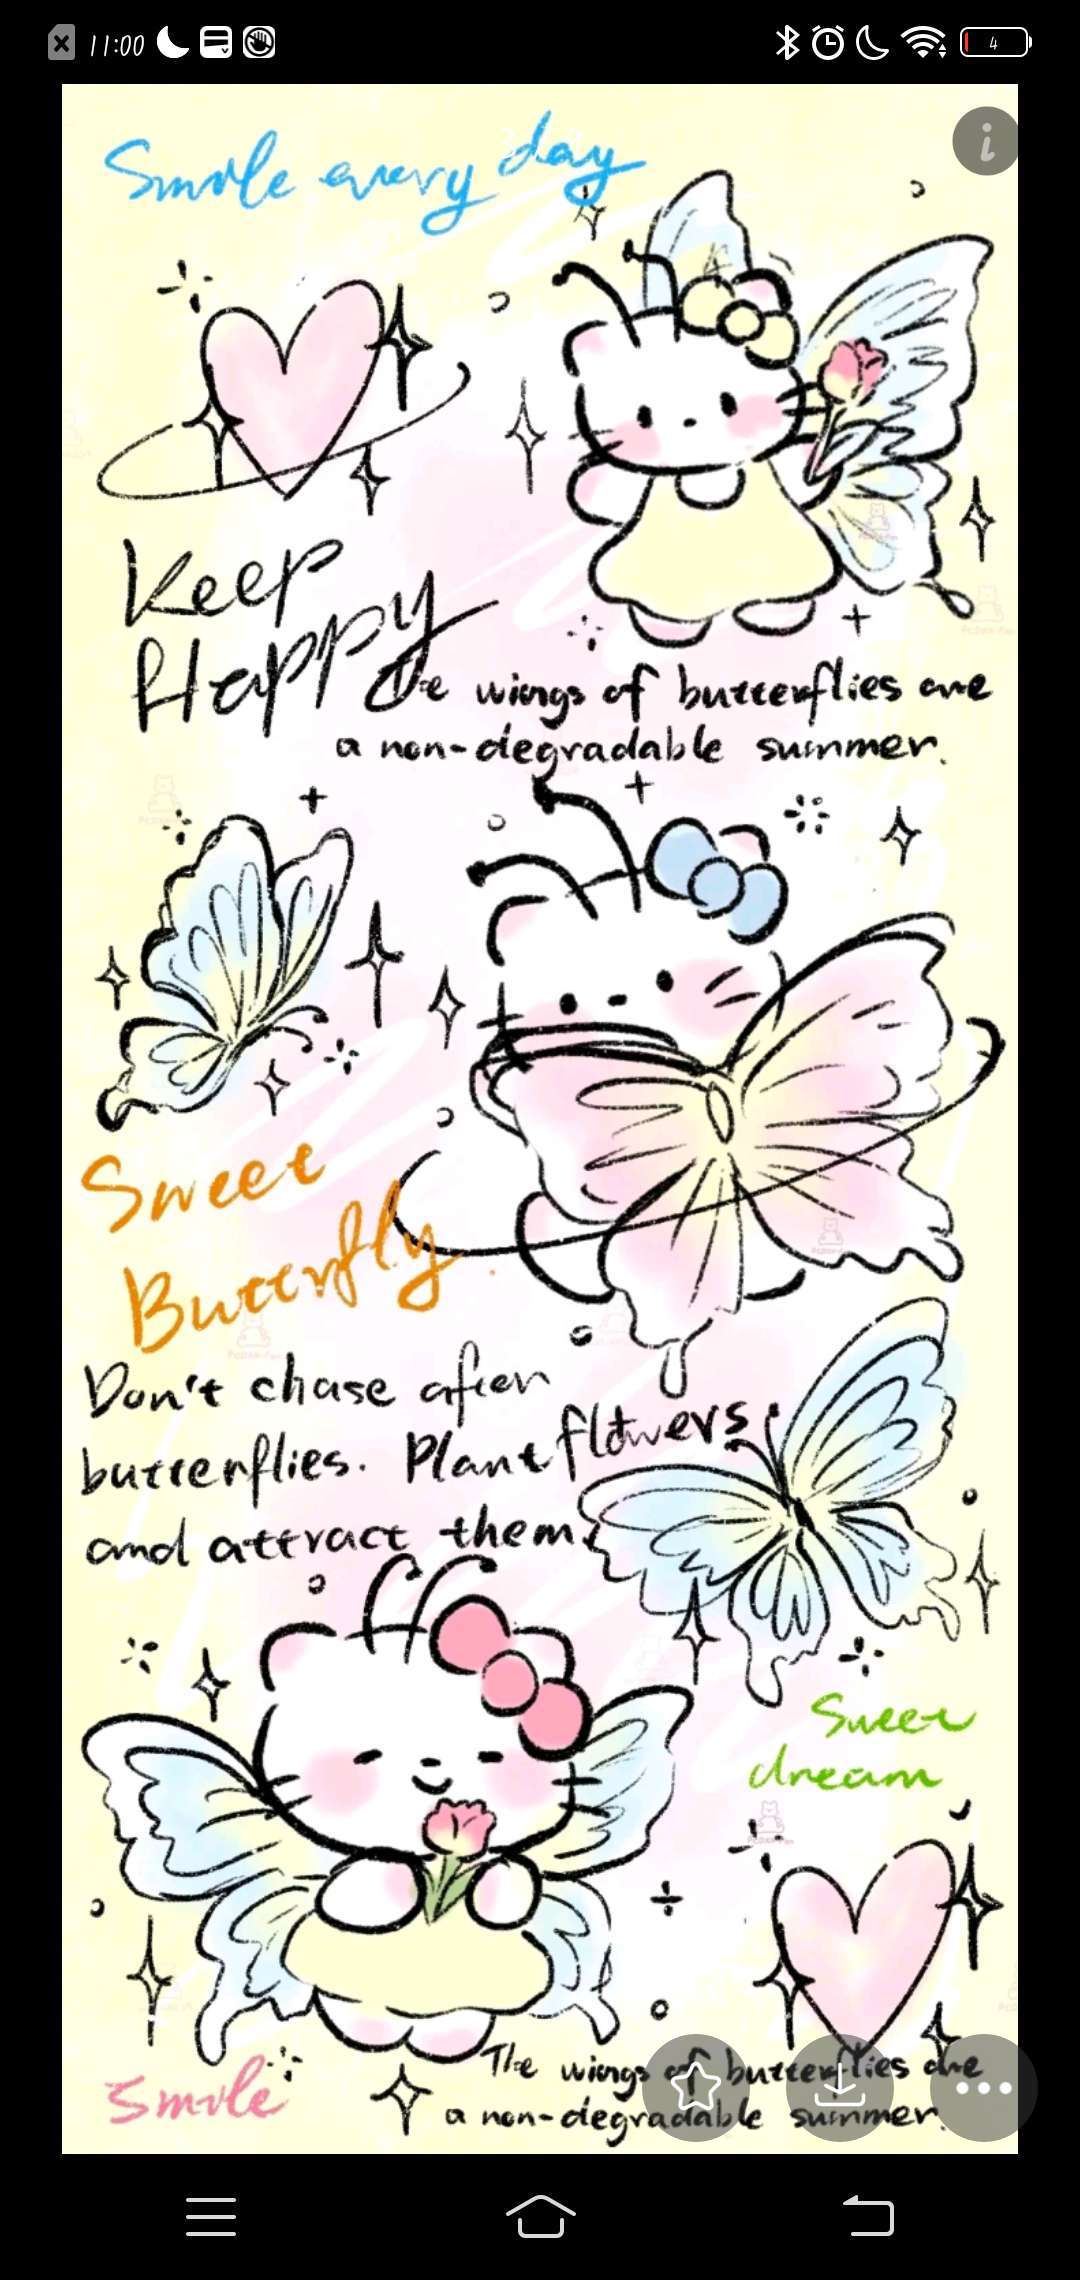 11:00
4
Smile every day
Keep
Happy
The wings of butterflies are
a non-degradable summer.
Sweet
Butterfly
Don't chase after
butterflies. Plant flowers
and attract them.
Sweet
dream
Smile
The wings of butterflies are
a non-degradable summer.